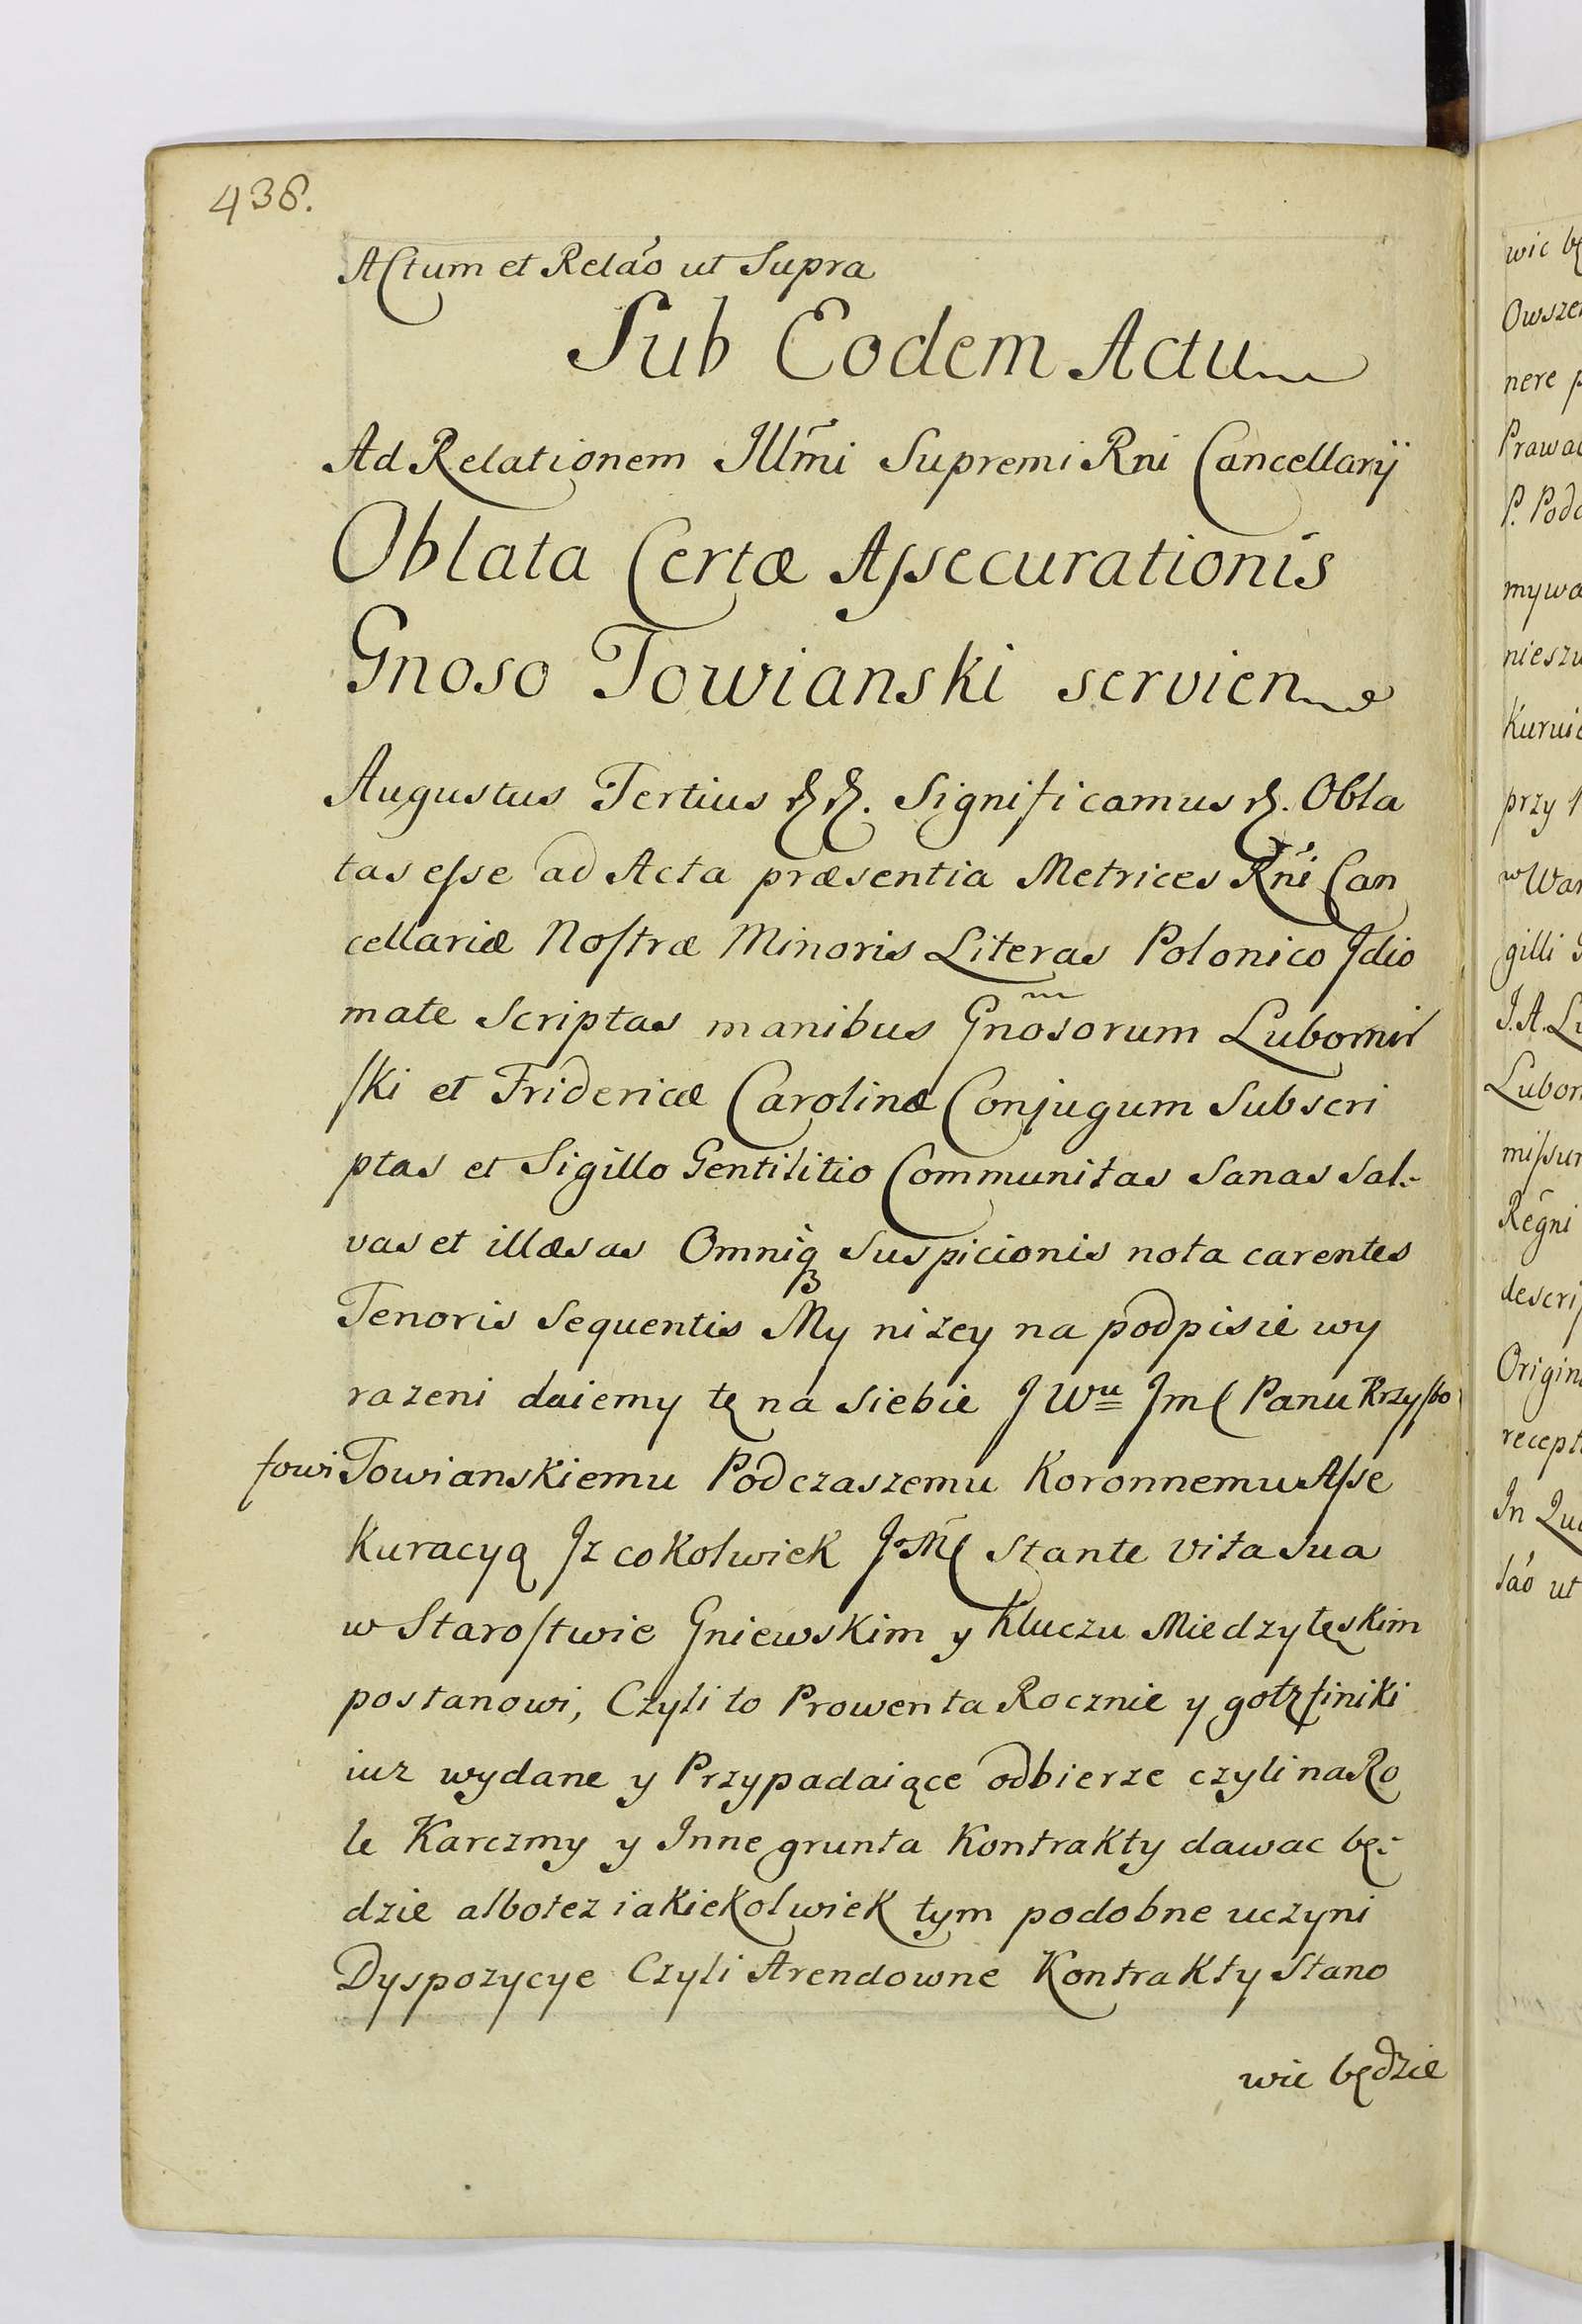 438.
Actum et Relão ut Supra
Sub Eodem Actu
Ad Relationem Illm̃i Supremi Rni Cancellarij
Oblata Certæ Assecurationis
Gnoso Towianski servien
Augustus Tertius &&. Significamus &. Obla
tas esse ad Acta præsentia Metrices Rñi Can
cellariæ Nostræ Minoris Literas Polonico Idio
mate Scriptas manibus Gnosorum Lubomir
ski et Fridericæ Carolinæ Conjugum Subscri
ptas et Sigillo Gentilitio Communitas Sanas Sal-
vas et illæsas Omniq Suspicionis nota carentes
Tenoris Sequentis My nizey na podpisie wy
razeni daiemy tę na Siebie J Wu Jmć Panu Krzyszto
fowi Towianskiemu Podczaszemu Koronnemu Asse
Kuracyą Jz cokolwiek JMć Stante Vita Sua
w Starostwie Gniewskim y Kluczu Miedzyłęskim
postanowi, Czyli to Prowenta Rocznie y
iuz wydane y Przypadaiące odbierze czyli na Ro
le Karczmy y Inne grunta Kontrakty dawac bę-
dzie albotez iakiekolwiek tym podobne uczyni
Dyspozycye Czyli Arendowne Kontrakty Stano
wic będzie
wic bę
nere p
P. Podc
mywa
nieszu
przy
w War
gilli G
J. A. Lu
Lubom
Regni
descrip
Origin
recept
lão ut